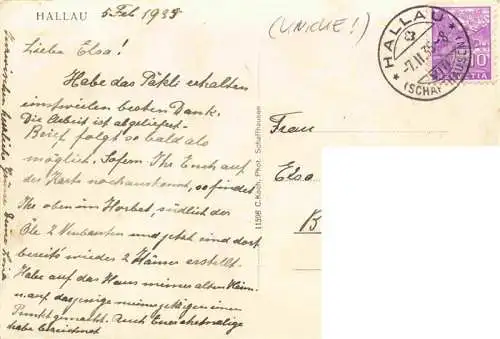 HALLAU
5 Feb 1935
(UNICUE!)
Lieben Elsa!
Habe das Päkli erhalten
innwelen besten Dank.
Die Arbeit ist abgeliefert
Brief folgt so bald als
möglich. Sofern Ihr Euch auf
der Karte noch auskennt, so findet
Ihr oben im Horbet, südlich der
Öle 2 Neubauten und jetzt sind dort
bereits wieder 2 Häuser erstellt.
Habe auf das Haus meiner alten Heim
u. auf dasjenige meine jetzigen einen
Punkt gemacht. Auch Eure ehemalige
habe bezeichnet
herzliche Grüsse Deine
11598 C. Koch, Phot. Schaffhausen
HALLAU
-7.II.35-8
(SCHAFFHAUSEN)
10
HELVETIA
Frau
Elsa
B